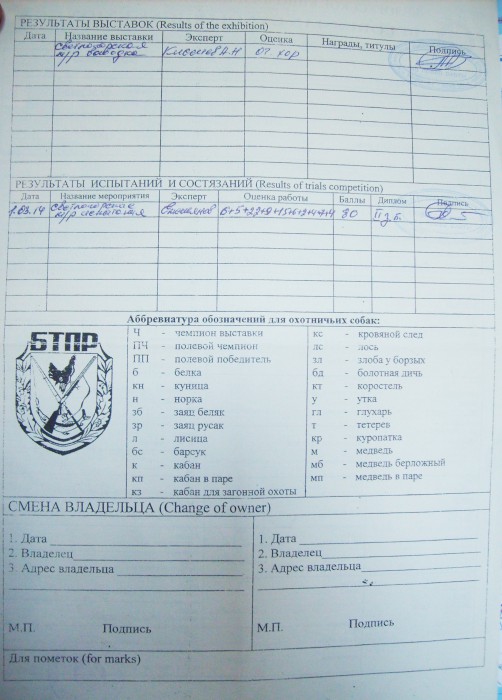 РЕЗУЛЬТАТЫ ВЫСТАВОК (Results of the exhibition)
Дата Название выставки Эксперт Оценка Награды, титулы Подпись
м/р выводка оч хор
РЕЗУЛЬТАТЫ ИСПЫТАНИЙ И СОСТЯЗАНИЙ (Results of trials competition)
Дата Название мероприятия Эксперт Оценка работы Баллы Диплом Подпись
м/р 80
Аббревиатура обозначений для охотничьих собак:
БТПР
Ч - чемпион выставки
ПЧ - полевой чемпион
ПП - полевой победитель
б - белка
кн - куница
н - норка
зб - заяц беляк
зр - заяц русак
л - лисица
бс - барсук
к - кабан
кп - кабан в паре
кз - кабан для загонной охоты
кс - кровяной след
лс - лось
зл - злоба у борзых
бд - болотная дичь
кт - коростель
у - утка
гл - глухарь
т - тетерев
кр - куропатка
м - медведь
мб - медведь берложный
мп - медведь в паре
СМЕНА ВЛАДЕЛЬЦА (Change of owner)
1. Дата
2. Владелец
3. Адрес владельца
М.П. Подпись
1. Дата
2. Владелец
3. Адрес владельца
М.П. Подпись
Для пометок (for marks)